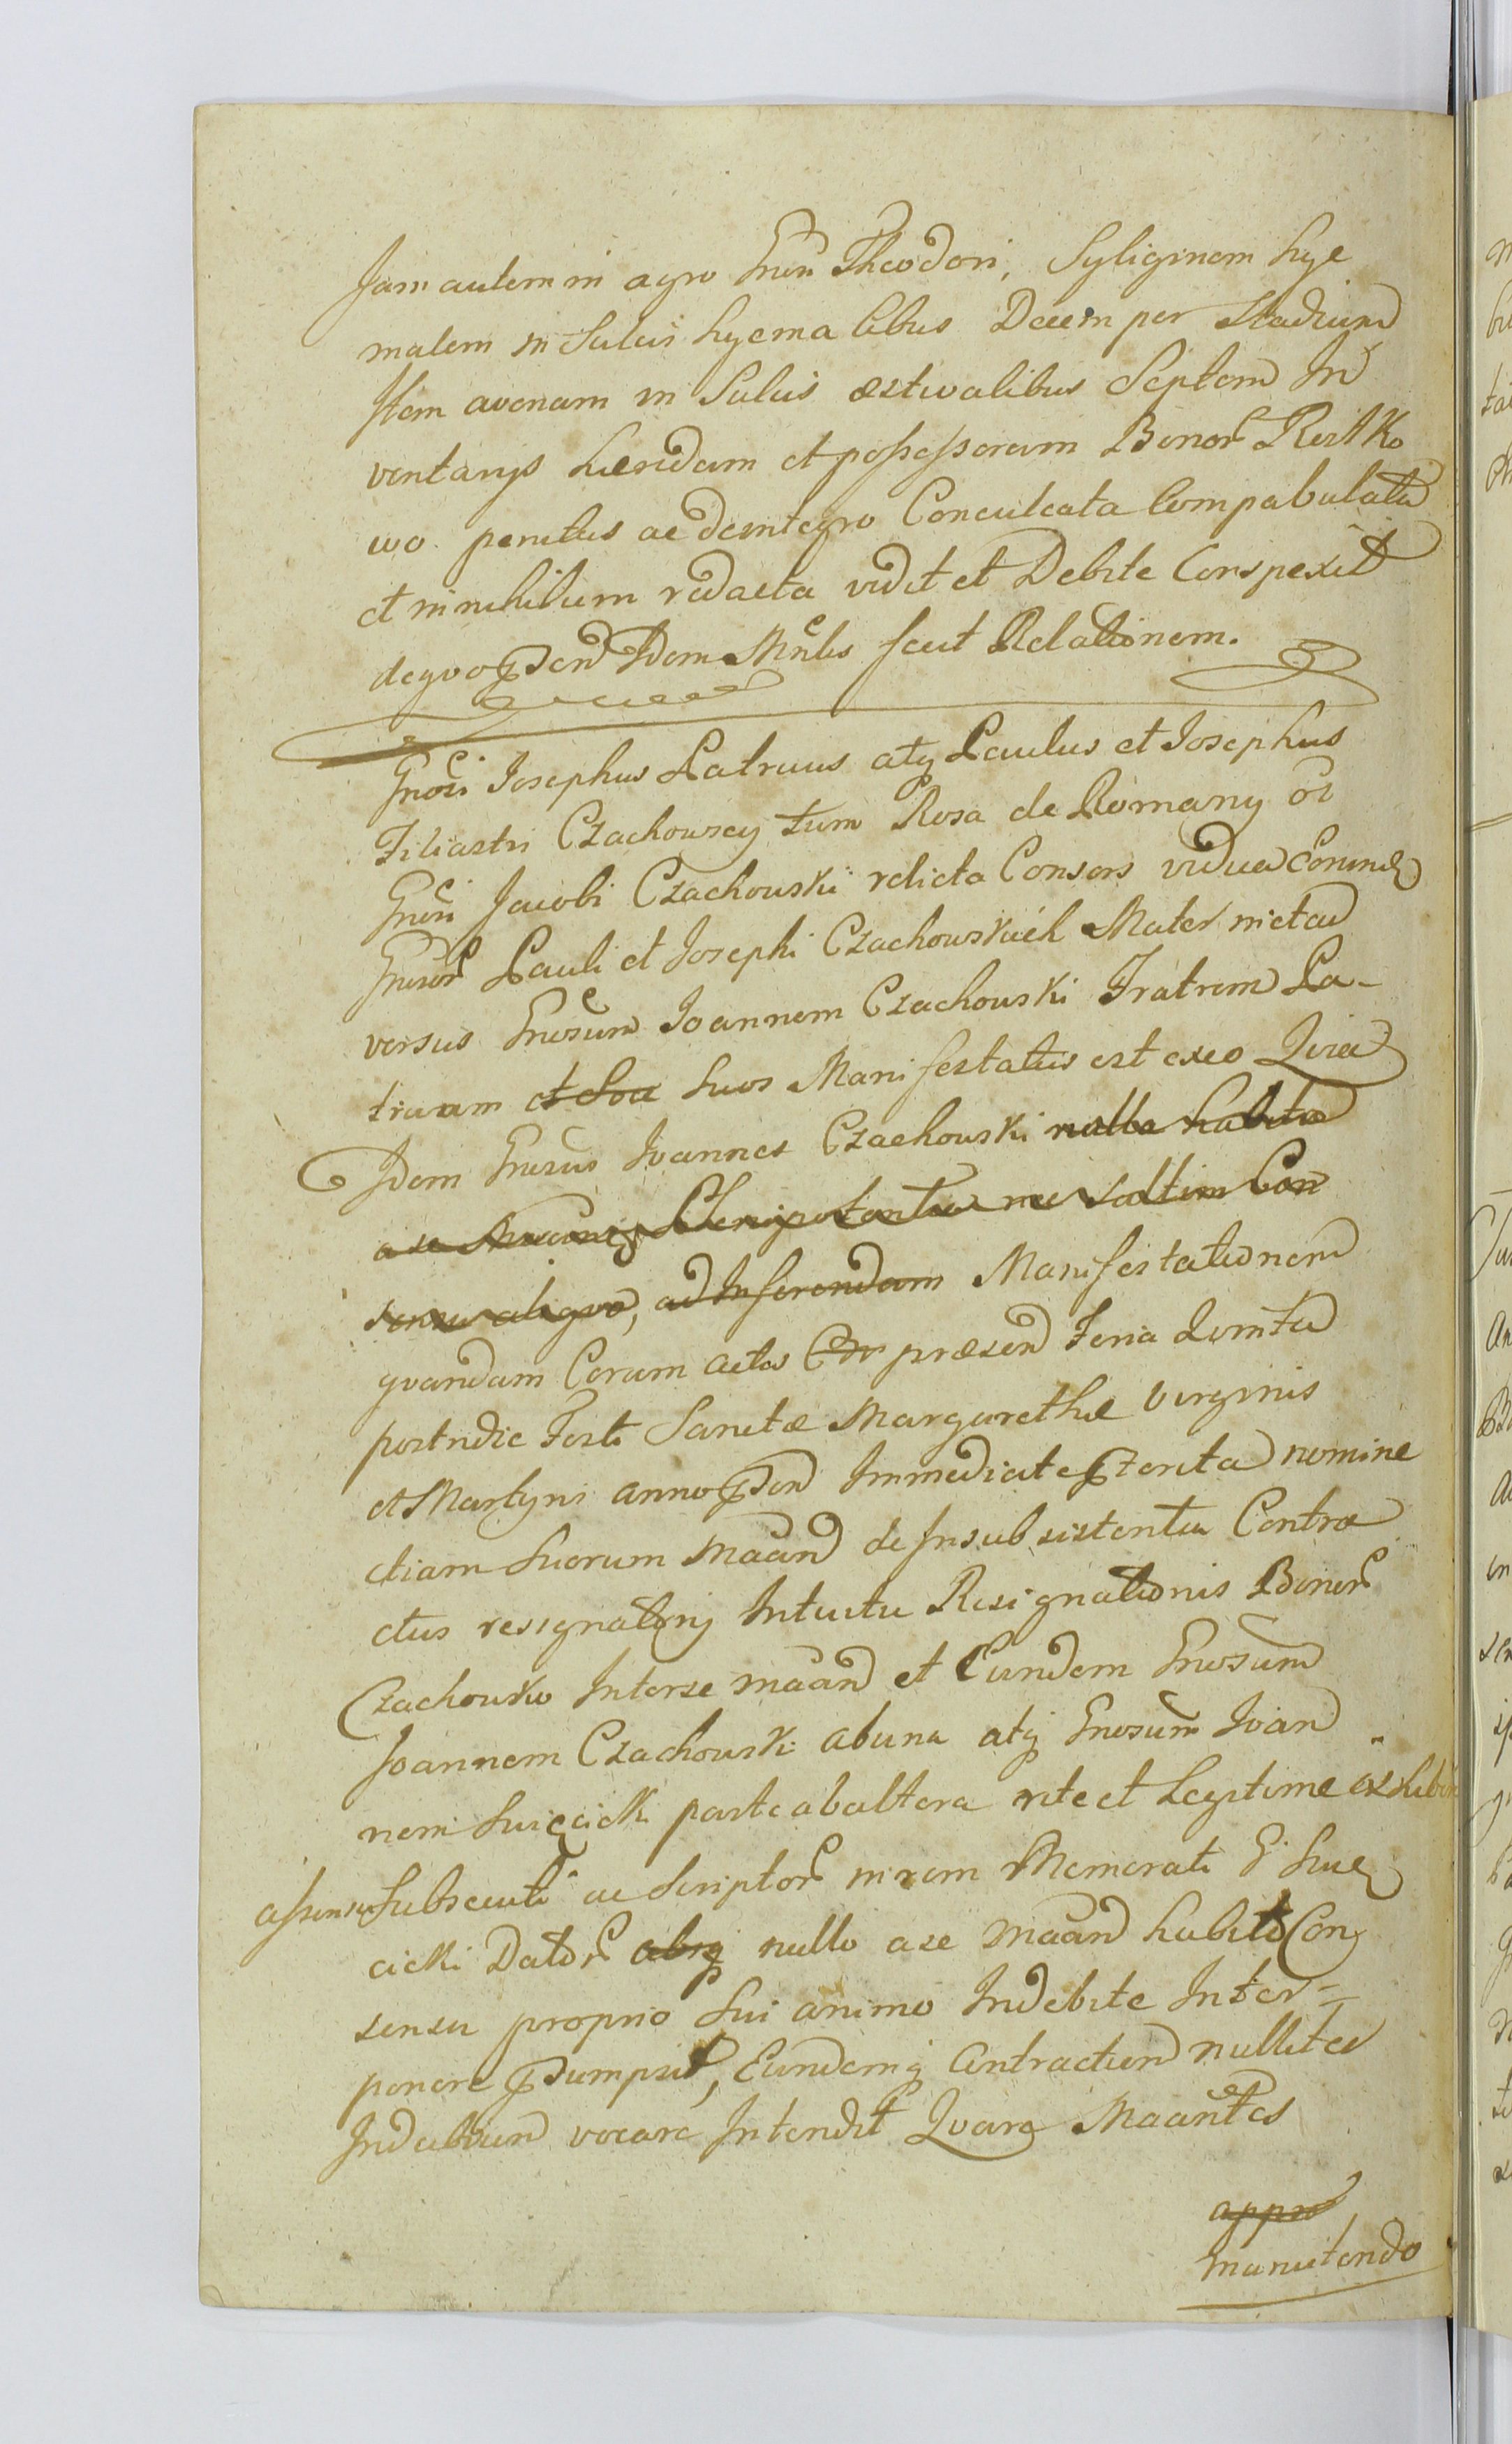 Jam autem in agro Gnsi Theodori, Syliginem hye
malem in Sulcis hyemalibus Decem per Stadium
Item avenam in Sulcis æstivalibus Septem In
ventarys hæredum et possessorum Bonor Rostko
wo penitus ac deintegro Conculcata Compabulata
et in nihilum redacta vidit et Debite Conspexit
de quo Idem Mnlis fecit Relationem.
Gnosi Josephus Patruus atq Paulus et Josephus
Filiastri Czachowscy tum Rosa de Romany ol
Gnosi Jacobi Czachowski relicta Consors vidua
Gnosor Pauli et Josephi Czachowskich Mater
versus Gnosum Joannem Czachowski Fratrem Pa-
truum et suos Manifestatus est ex eo Quia
Idem Gnosus Joannes Czachowski nulla habita
a se Plenipotentia nec saltim Con
sensu aliquo, ad Inferendam Manifestationem
quandam Coram actis præsen Feria Quinta
postridie Festi Sanctæ Margarethæ Virginis
et Martyris anno Immediate nomine
etiam Suorum Maan de Insubsistentia Contra
ctus resignatory Intuitu Resignationis Bonor
Czachowko Inter se maan et Eundem Gnosum
Joannem Czachowski ab una atq Gnosum Joan
nem Święcicki parte ab altera rite et Legitime
assensu Subsecuti ac Scriptor in rem Memorati G Swię
cicki Dator absq nullo a se Maan habito Con
sensu proprio Sui animo Indebite Inter-
ponere psumpsit, Eundemq Contractum nulliter
In dubium vocare Intendit Quare Maantes
appro
manutendo